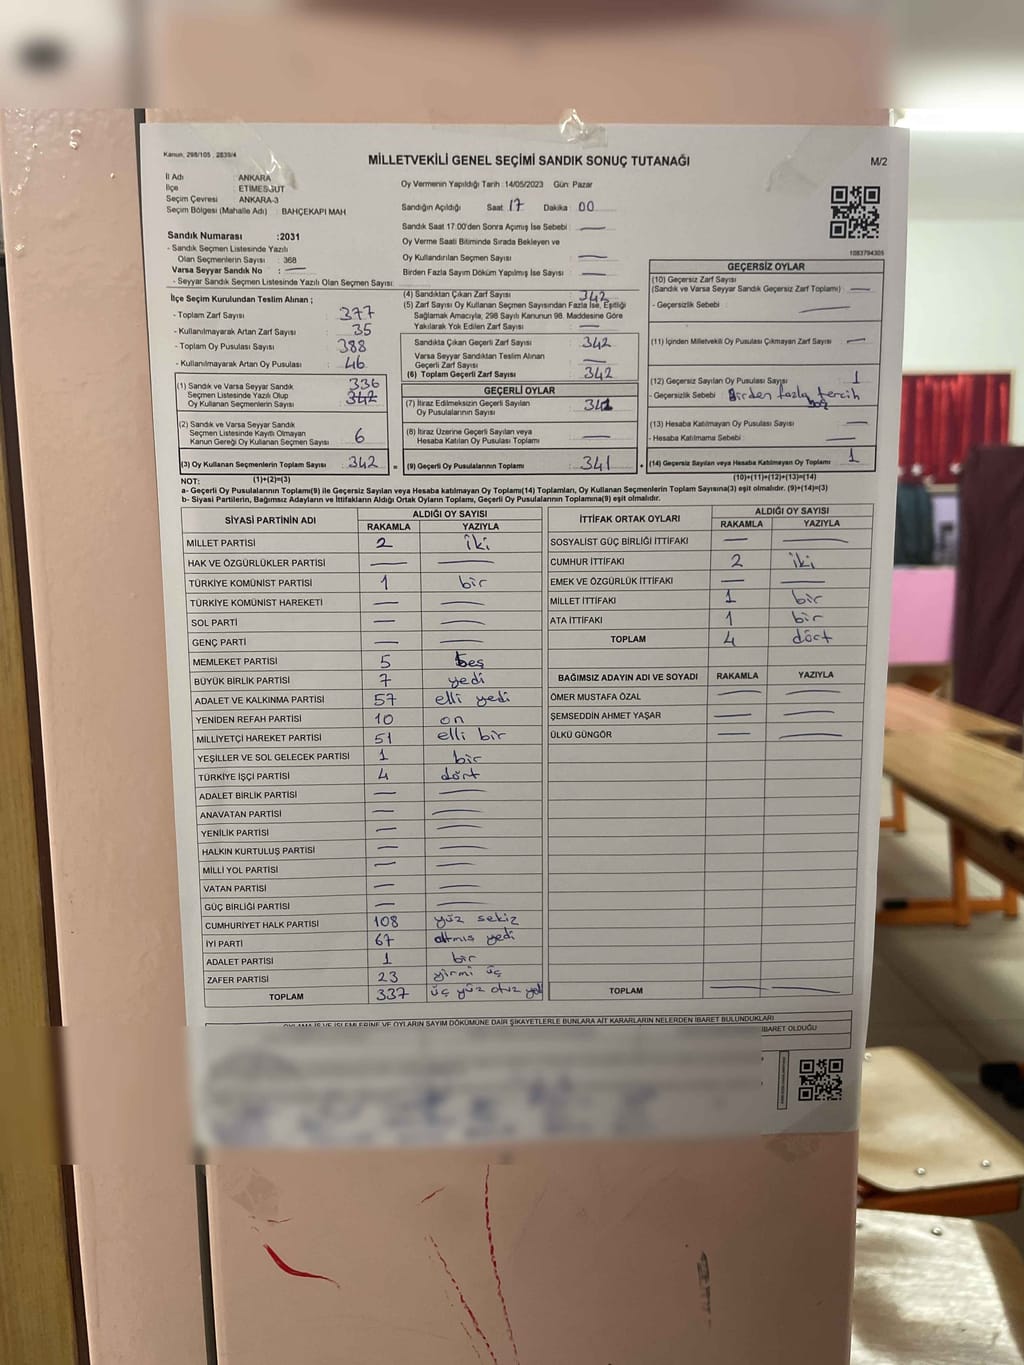 Kanun, 298/105 , 2839/4
MİLLETVEKİLİ GENEL SEÇİMİ SANDIK SONUÇ TUTANAĞI
M/2
İl Adı : ANKARA
İlçe : ETİMESGUT
Seçim Çevresi : ANKARA-3
Seçim Bölgesi (Mahalle Adı) : BAHÇEKAPI MAH
Sandık Numarası :2031
- Sandık Seçmen Listesinde Yazılı
Olan Seçmenlerin Sayısı : 368
Varsa Seyyar Sandık No : —
- Seyyar Sandık Seçmen Listesinde Yazılı Olan Seçmen Sayısı:
Oy Vermenin Yapıldığı Tarih : 14/05/2023 Gün: Pazar
Sandığın Açıldığı Saat 17 Dakika : 00
Sandık Saat 17.00'den Sonra Açımış İse Sebebi : —
Oy Verme Saati Bitiminde Sırada Bekleyen ve
Oy Kullandırılan Seçmen Sayısı : —
Birden Fazla Sayım Döküm Yapılmış İse Sayısı : —
1083794305
İlçe Seçim Kurulundan Teslim Alınan ;
- Toplam Zarf Sayısı : 377
- Kullanılmayarak Artan Zarf Sayısı : 35
- Toplam Oy Pusulası Sayısı : 388
- Kullanılmayarak Artan Oy Pusulası : 46
(1) Sandık ve Varsa Seyyar Sandık
Seçmen Listesinde Yazılı Olup
Oy Kullanan Seçmenlerin Sayısı : 336 342
(2) Sandık ve Varsa Seyyar Sandık
Seçmen Listesinde Kayıtlı Olmayan
Kanun Gereği Oy Kullanan Seçmen Sayısı : 6
(3) Oy Kullanan Seçmenlerin Toplam Sayısı : 342
(4) Sandıktan Çıkan Zarf Sayısı : 342
(5) Zarf Sayısı Oy Kullanan Seçmen Sayısından Fazla İse, Eşitliği
Sağlamak Amacıyla, 298 Sayılı Kanunun 98. Maddesine Göre
Yakılarak Yok Edilen Zarf Sayısı : —
Sandıkta Çıkan Geçerli Zarf Sayısı : 342
Varsa Seyyar Sandıktan Teslim Alınan
Geçerli Zarf Sayısı : —
(6) Toplam Geçerli Zarf Sayısı : 342
GEÇERLİ OYLAR
(7) İtiraz Edilmeksizin Geçerli Sayılan
Oy Pusulalarının Sayısı : 341
(8) İtiraz Üzerine Geçerli Sayılan veya
Hesaba Katılan Oy Pusulası Toplamı : —
= (9) Geçerli Oy Pusulalarının Toplamı : 341 +
GEÇERSİZ OYLAR
(10) Geçersiz Zarf Sayısı
(Sandık ve Varsa Seyyar Sandık Geçersiz Zarf Toplamı) : —
- Geçersizlik Sebebi : —
(11) İçinden Milletvekili Oy Pusulası Çıkmayan Zarf Sayısı : —
(12) Geçersiz Sayılan Oy Pusulası Sayısı : 1
- Geçersizlik Sebebi : Birden fazla tercih
(13) Hesaba Katılmayan Oy Pusulası Sayısı : —
- Hesaba Katılmama Sebebi : —
(14) Geçersiz Sayılan veya Hesaba Katılmayan Oy Toplamı : 1
NOT: (1)+(2)=(3) (10)+(11)+(12)+(13)=(14)
a- Geçerli Oy Pusulalarının Toplamı(9) ile Geçersiz Sayılan veya Hesaba katılmayan Oy Toplamı(14) Toplamları, Oy Kullanan Seçmenlerin Toplam Sayısına(3) eşit olmalıdır. (9)+(14)=(3)
b- Siyasi Partilerin, Bağımsız Adayların ve İttifakların Aldığı Ortak Oyların Toplamı, Geçerli Oy Pusulalarının Toplamına(9) eşit olmalıdır.
SİYASİ PARTİNİN ADI ALDIĞI OY SAYISI
RAKAMLA YAZIYLA
MİLLET PARTİSİ 2 iki
HAK VE ÖZGÜRLÜKLER PARTİSİ — —
TÜRKİYE KOMÜNİST PARTİSİ 1 bir
TÜRKİYE KOMÜNİST HAREKETİ — —
SOL PARTİ — —
GENÇ PARTİ — —
MEMLEKET PARTİSİ 5 beş
BÜYÜK BİRLİK PARTİSİ 7 yedi
ADALET VE KALKINMA PARTİSİ 57 elli yedi
YENİDEN REFAH PARTİSİ 10 on
MİLLİYETÇİ HAREKET PARTİSİ 51 elli bir
YEŞİLLER VE SOL GELECEK PARTİSİ 1 bir
TÜRKİYE İŞÇİ PARTİSİ 4 dört
ADALET BİRLİK PARTİSİ — —
ANAVATAN PARTİSİ — —
YENİLİK PARTİSİ — —
HALKIN KURTULUŞ PARTİSİ — —
MİLLİ YOL PARTİSİ — —
VATAN PARTİSİ — —
GÜÇ BİRLİĞİ PARTİSİ — —
CUMHURİYET HALK PARTİSİ 108 yüz sekiz
İYİ PARTİ 67 altmış yedi
ADALET PARTİSİ 1 bir
ZAFER PARTİSİ 23 yirmi üç
TOPLAM 337 üç yüz otuz yedi
İTTİFAK ORTAK OYLARI ALDIĞI OY SAYISI
RAKAMLA YAZIYLA
SOSYALİST GÜÇ BİRLİĞİ İTTİFAKI — —
CUMHUR İTTİFAKI 2 iki
EMEK VE ÖZGÜRLÜK İTTİFAKI — —
MİLLET İTTİFAKI 1 bir
ATA İTTİFAKI 1 bir
TOPLAM 4 dört
BAĞIMSIZ ADAYIN ADI VE SOYADI RAKAMLA YAZIYLA
ÖMER MUSTAFA ÖZAL — —
ŞEMSEDDİN AHMET YAŞAR — —
ÜLKÜ GÜNGÖR — —
TOPLAM — —
OYLAMA İŞ VE İŞLEMLERİNE VE OYLARIN SAYIM DÖKÜMÜNE DAİR ŞİKAYETLERLE BUNLARA AİT KARARLARIN NELERDEN İBARET BULUNDUKLARI
İBARET OLDUĞU